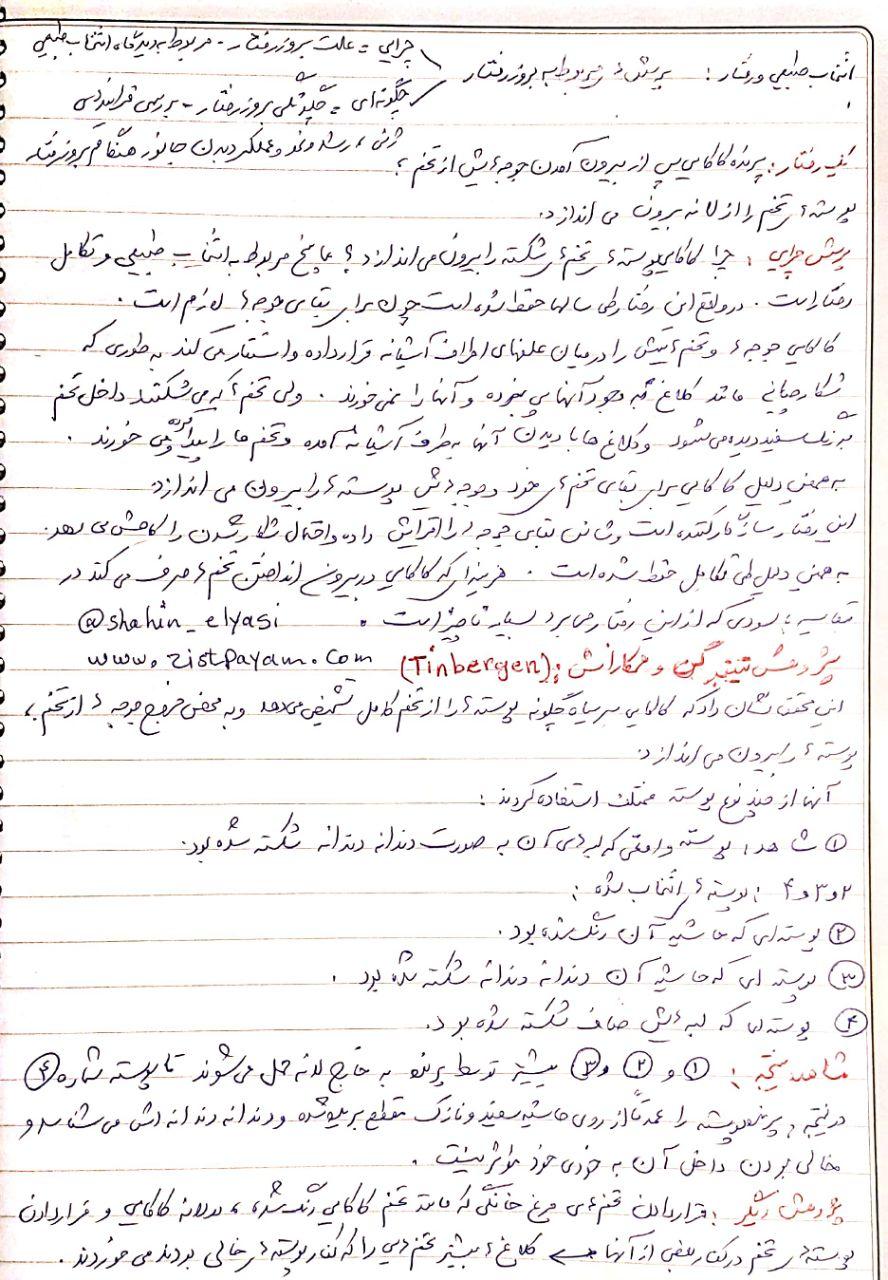 چرایی = علت بروز رفتار - مربوط به دیدگاه انتخاب طبیعی
انتخاب طبیعی و رفتار: پرسش‌های مربوط به بروز رفتار
چگونه‌ای = چگونگی بروز رفتار - بررسی فرایندهای
ژنی، رشد و نمو و عملکرد بدن جانور هنگام بروز رفتار
رفتار: پرنده کاکایی پس از بیرون آمدن جوجه‌هایش از تخم،
پوسته‌های تخم را از لانه بیرون می اندازد.
پرسش چرایی: چرا کاکایی پوسته‌های تخم‌های شکسته را بیرون می اندازد؟ پاسخ مربوط به انتخاب طبیعی و تکامل
رفتار است. در واقع این رفتار طی سالها حفظ شده است چون برای بقای جوجه‌ها لازم است.
کاکایی جوجه‌ها و تخم‌هایش را در میان علفهای اطراف آشیانه قرار داده و استتار می کند به طوری که
شکارچیانی مانند کلاغ به وجود آنها پی نبرده و آنها را نمی خورند. ولی تخم‌ها که می شکنند داخل تخم
به رنگ سفید دیده می شود و کلاغ ها با دیدن آنها به طرف آشیانه آمده و تخم ها را پیدا کرده و می خورند.
به همین دلیل کاکایی برای بقای تخم‌های خود و جوجه‌هایش پوسته‌ها را بیرون می اندازد.
این رفتار سازگار کننده است و شانس بقای جوجه‌ها را افزایش داده و احتمال شکار شدن را کاهش می دهد.
به همین دلیل طی تکامل حفظ شده است. هزینه‌ای که کاکایی در بیرون انداختن تخم‌ها صرف می کند در
مقایسه با سودی که از این رفتار می برد بسیار ناچیز است. @shahin_elyasi
پژوهش تینبرگن و همکارانش (Tinbergen): www.zistpayam.com
این محقق نشان داد که کاکایی سرسیاه چگونه پوسته‌ها را از تخم کامل تشخیص می دهد و به محض خروج جوجه‌ها از تخم،
پوسته‌ها را بیرون می اندازد.
آنها از چند نوع پوسته مختلف استفاده کردند:
① شاهد: پوسته واقعی که لبه‌های آن به صورت دندانه دندانه شکسته شده بود.
۲ و ۳ و ۴: پوسته‌های انتخاب شده:
② پوسته‌ای که حاشیه آن رنگ شده بود.
③ پوسته ای که حاشیه آن دندانه دندانه شکسته شده بود.
④ پوسته‌ای که لبه‌هایش صاف شکسته شده بود.
مشاهده نتیجه: ① و ② و ③ بیشتر توسط پرنده به خارج لانه حمل می شوند تا پوسته شماره ④
در نتیجه، پرنده پوسته را عمدتاً از روی حاشیه سفید و نازک مقطع بریده شده و دندانه دندانه اش می شناسد و
خالی بودن داخل آن به خودی خود مؤثر نیست.
پژوهش دیگر: قرار دادن تخم‌های مرغ خانگی که مانند تخم کاکایی رنگ شده، در لانه کاکایی و قرار دادن
پوسته‌های تخم در کنار بعضی از آنها ← کلاغ‌ها بیشتر تخم‌هایی را که کنار پوسته‌های خالی بودند می خوردند.